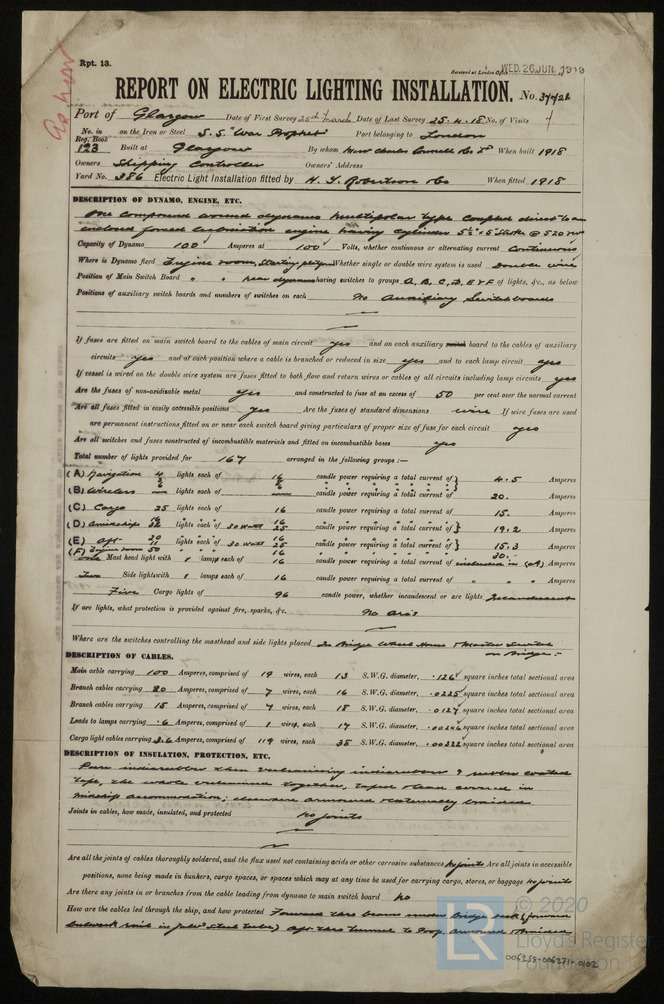 Rpt. 13.
Received at London Office WED. 26 JUN. 1918
REPORT ON ELECTRIC LIGHTING INSTALLATION. No. 37921
Port of Glasgow Date of First Survey 20th March Date of Last Survey 25.4.18 No. of Visits 7
No. in Reg. Book 123 on the Iron or Steel S.S. "War Prophet" Port belonging to London
Built at Glasgow By whom Messrs Charles Connell & Co Ld When built 1918
Owners Shipping Controller Owners' Address
Yard No. 386 Electric Light Installation fitted by H. S. Robertson & Co When fitted 1918
DESCRIPTION OF DYNAMO, ENGINE, ETC.
One compound wound dynamo multipolar type coupled direct to an
enclosed forced lubrication engine having cylinder 5½" x 5" Stroke @ 520 rev
Capacity of Dynamo 100 Amperes at 100 Volts, whether continuous or alternating current Continuous
Where is Dynamo fixed Engine room, Starting platform Whether single or double wire system is used Double wire
Position of Main Switch Board " " near dynamo having switches to groups A, B, C, D, E & F of lights, &c., as below
Positions of auxiliary switch boards and numbers of switches on each No Auxiliary Switchboards
If fuses are fitted on main switch board to the cables of main circuit yes and on each auxiliary switch board to the cables of auxiliary
circuits yes and at each position where a cable is branched or reduced in size yes and to each lamp circuit yes
If vessel is wired on the double wire system are fuses fitted to both flow and return wires or cables of all circuits including lamp circuits yes
Are the fuses of non-oxidisable metal yes and constructed to fuse at an excess of 50 per cent over the normal current
Are all fuses fitted in easily accessible positions yes Are the fuses of standard dimensions wire If wire fuses are used
are permanent instructions fitted on or near each switch board giving particulars of proper size of fuse for each circuit yes
Are all switches and fuses constructed of incombustible materials and fitted on incombustible bases yes
Total number of lights provided for 167 arranged in the following groups:—
(A) Navigation 4 lights each of 16 candle power requiring a total current of 4.5 Amperes
(B) Wireless lights each of candle power requiring a total current of 20. Amperes
(C) Cargo 25 lights each of 16 candle power requiring a total current of 15. Amperes
(D) Amidships 32 lights each of 30 Watt 16 25 candle power requiring a total current of 19.2 Amperes
(E) Aft 20 11 lights each of 30 Watt 16 25 candle power requiring a total current of 15.3 Amperes
(F) Engine room 50 16 30.
One Mast head light with 1 lamps each of 16 candle power requiring a total current of included in (A) Amperes
Two Side lights with 1 lamps each of 16 candle power requiring a total current of " " Amperes
Five Cargo lights of 96 candle power, whether incandescent or arc lights Incandescent
If arc lights, what protection is provided against fire, sparks, &c. No Arcs
Where are the switches controlling the masthead and side lights placed In Bridge Wheel House & Master Switch
on Bridge.
DESCRIPTION OF CABLES.
Main cable carrying 100 Amperes, comprised of 19 wires, each 13 S.W.G. diameter, .126 square inches total sectional area
Branch cables carrying 20 Amperes, comprised of 7 wires, each 16 S.W.G. diameter, .0225 square inches total sectional area
Branch cables carrying 15 Amperes, comprised of 7 wires, each 18 S.W.G. diameter, .0127 square inches total sectional area
Leads to lamps carrying .6 Amperes, comprised of 1 wires, each 17 S.W.G. diameter, .00246 square inches total sectional area
Cargo light cables carrying 3.6 Amperes, comprised of 119 wires, each 38 S.W.G. diameter, .00322 square inches total sectional area
DESCRIPTION OF INSULATION, PROTECTION, ETC.
Pure indiarubber then vulcanising indiarubber & rubber coated
tape, the whole vulcanised together, taped & lead covered in
midship accommodation; elsewhere armoured & externally braided
Joints in cables, how made, insulated, and protected No joints
Are all the joints of cables thoroughly soldered, and the flux used not containing acids or other corrosive substances No joints Are all joints in accessible
positions, none being made in bunkers, cargo spaces, or spaces which may at any time be used for carrying cargo, stores, or baggage No joints
Are there any joints in or branches from the cable leading from dynamo to main switch board No
How are the cables led through the ship, and how protected Forward thro beams under bridge deck (forward
bulwark rail in steel tubes) Aft thro tunnel to Poop. armoured & braided
© 2020
LR
Lloyd's Register
Foundation
006258-006271-0102